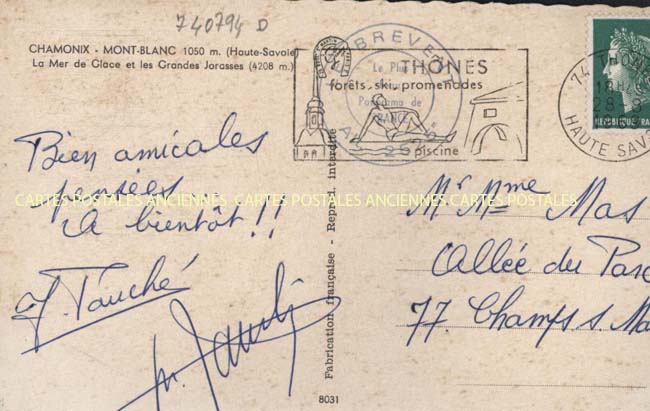 740794 D
CHAMONIX - MONT-BLANC 1050 m. (Haute-Savoie)
La Mer de Glace et les Grandes Jorasses (4208 m.)
BREVENT
Le Plus
Panorama de
FRANCE
THÔNES
forêts. ski. promenades
piscine
74 THÔNES
18H
28-8
HAUTE SAVOIE
REPUBLIQUE FRA
Bien amicales
pensées
A bientôt !!
J. Fauché
CARTES POSTALES ANCIENNES CARTES POSTALES ANCIENNES CARTES POSTALES
Fabrication française - Reprod. interdite
8031
Mr Mme Mas
Allée du Parc
77. Champs s Ma